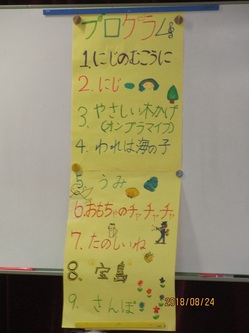 プログラム
1.にじのむこうに
2.にじ
3.やさしい木かげ
(オンブラマイフ)
4.われは海の子
5.うみ
6.おもちゃのチャチャチャ
7.たのしいね
8.宝島
9.さんぽ
2018/08/24